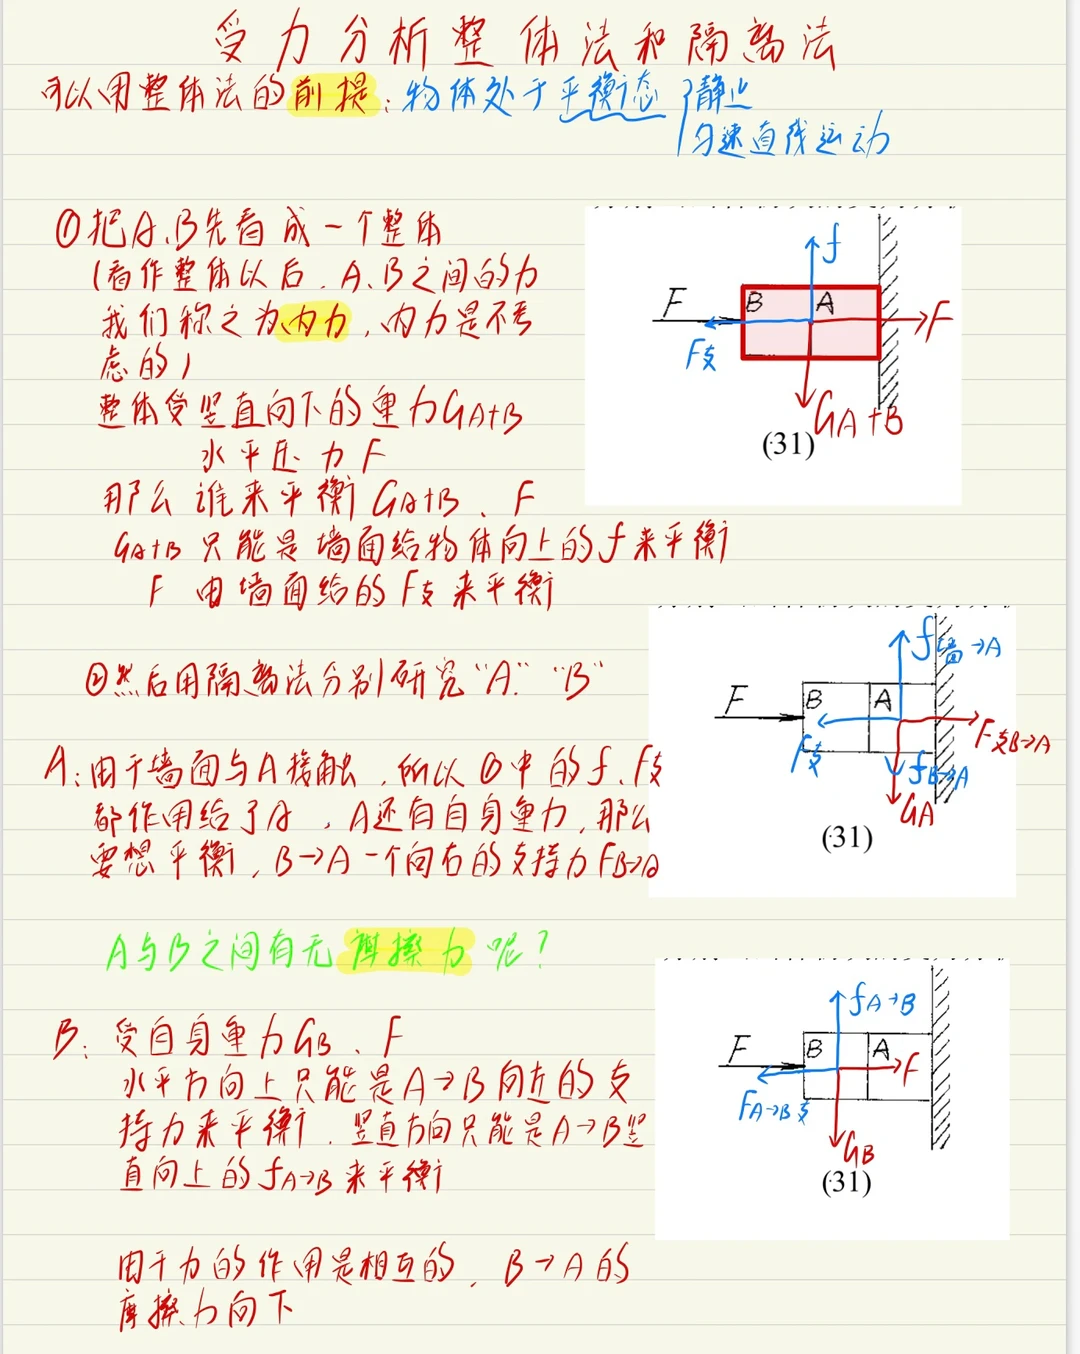 受力分析整体法和隔离法
可以用整体法的前提：物体处于平衡态 静止
匀速直线运动
①把A、B先看成一个整体
(看作整体以后，A、B之间的力
我们称之为内力，内力是不考
虑的)
整体受竖直向下的重力GA+B
水平压力F
那么谁来平衡GA+B、F
GA+B只能是墙面给物体向上的f来平衡
F 由墙面给的F支来平衡
f
F
B
A
F
F支
GA+B
(31)
②然后用隔离法分别研究“A”“B”
f墙面→A
F
B
A
F支B→A
F支
fB→A
GA
(31)
A：由于墙面与A接触，所以①中的f、F支
都作用给了A，A还有自身重力，那么
要想平衡，B→A一个向右的支持力FB→A
A与B之间有无摩擦力呢？
B：受自身重力GB、F
水平方向上只能是A→B向左的支
持力来平衡，竖直方向只能是A→B竖
直向上的fA→B来平衡
fA→B
F
B
A
F
FA→B支
GB
(31)
由于力的作用是相互的，B→A的
摩擦力向下